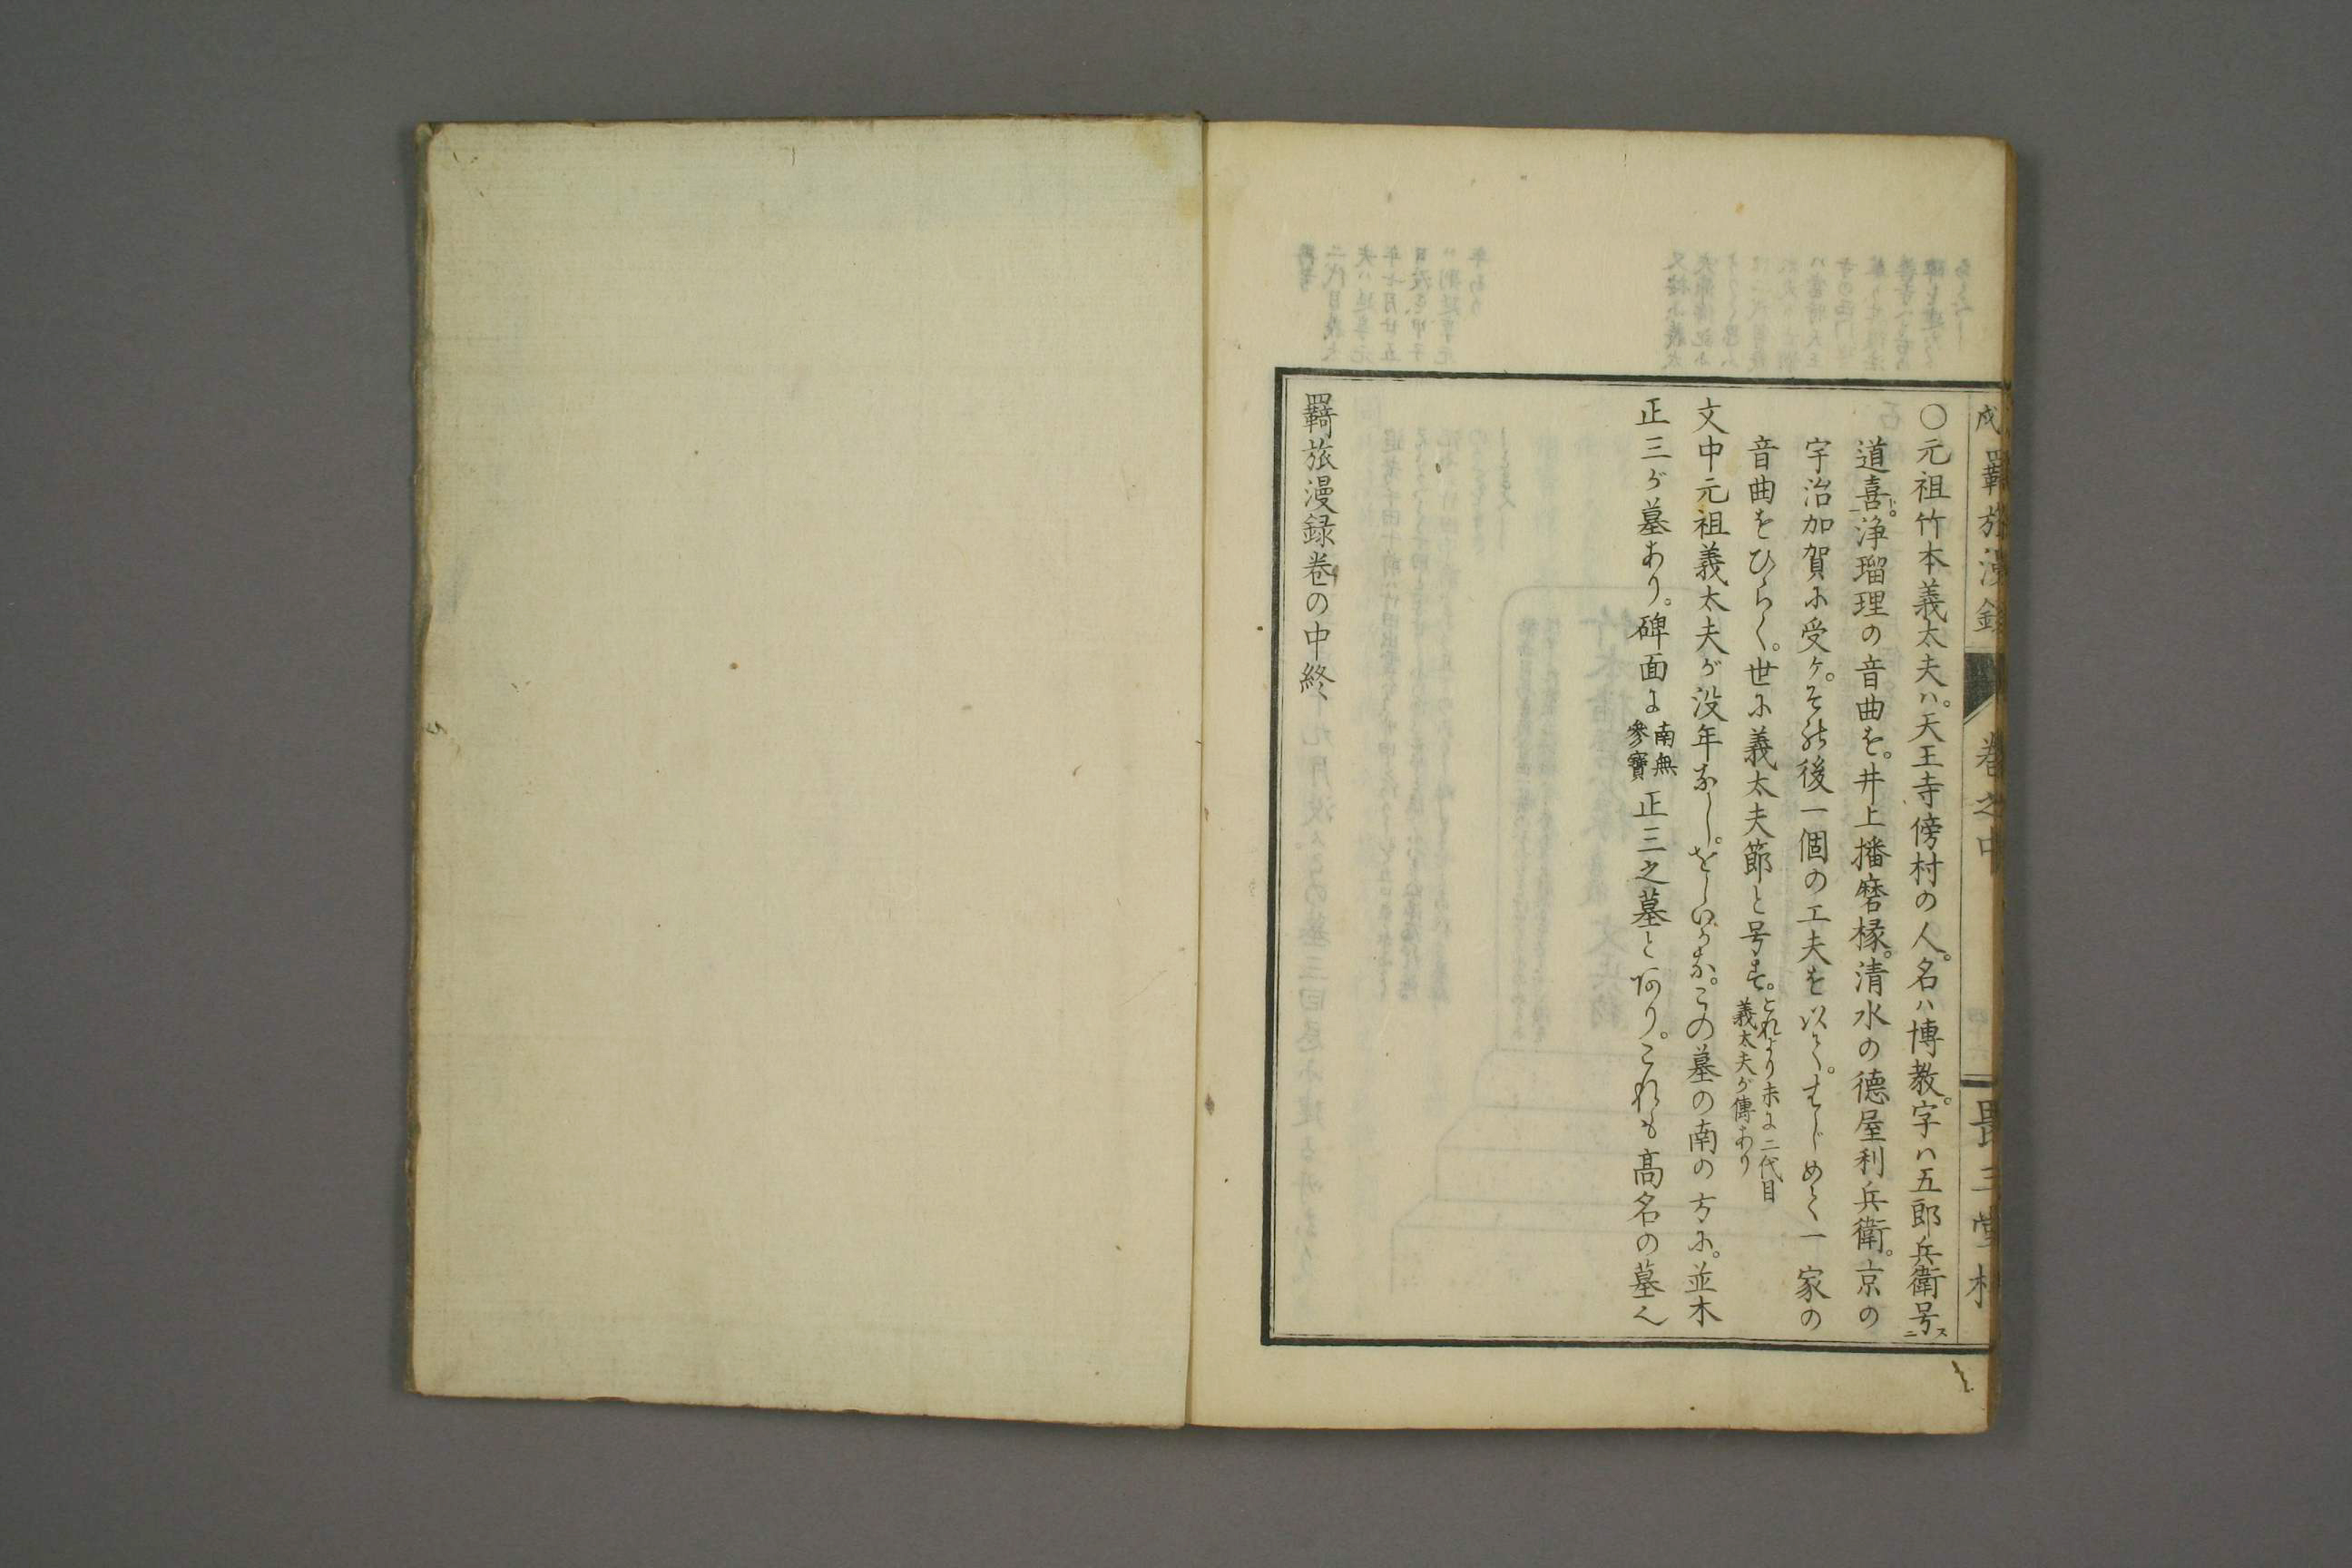 戌羇旅漫録 巻之中 畏三堂
○元祖竹本義太夫ハ。天王寺傍村の人。名ハ博教。字ハ五郎兵衛号ス二
道喜ト。浄瑠理の音曲を。井上播磨椽。清水の徳屋利兵衛。京の
宇治加賀に受ケ。その後一個の工夫を以て。はじめて一家の
音曲をひらく。世に義太夫節と号す。これより末に二代目
義太夫が傳あり
文中元祖義太夫が没年なし。をしいかな。この墓の南の方に。並木
正三が墓あり。碑面に南無
參寳正三之墓とあり。これも高名の墓也
羇旅漫録巻の中終